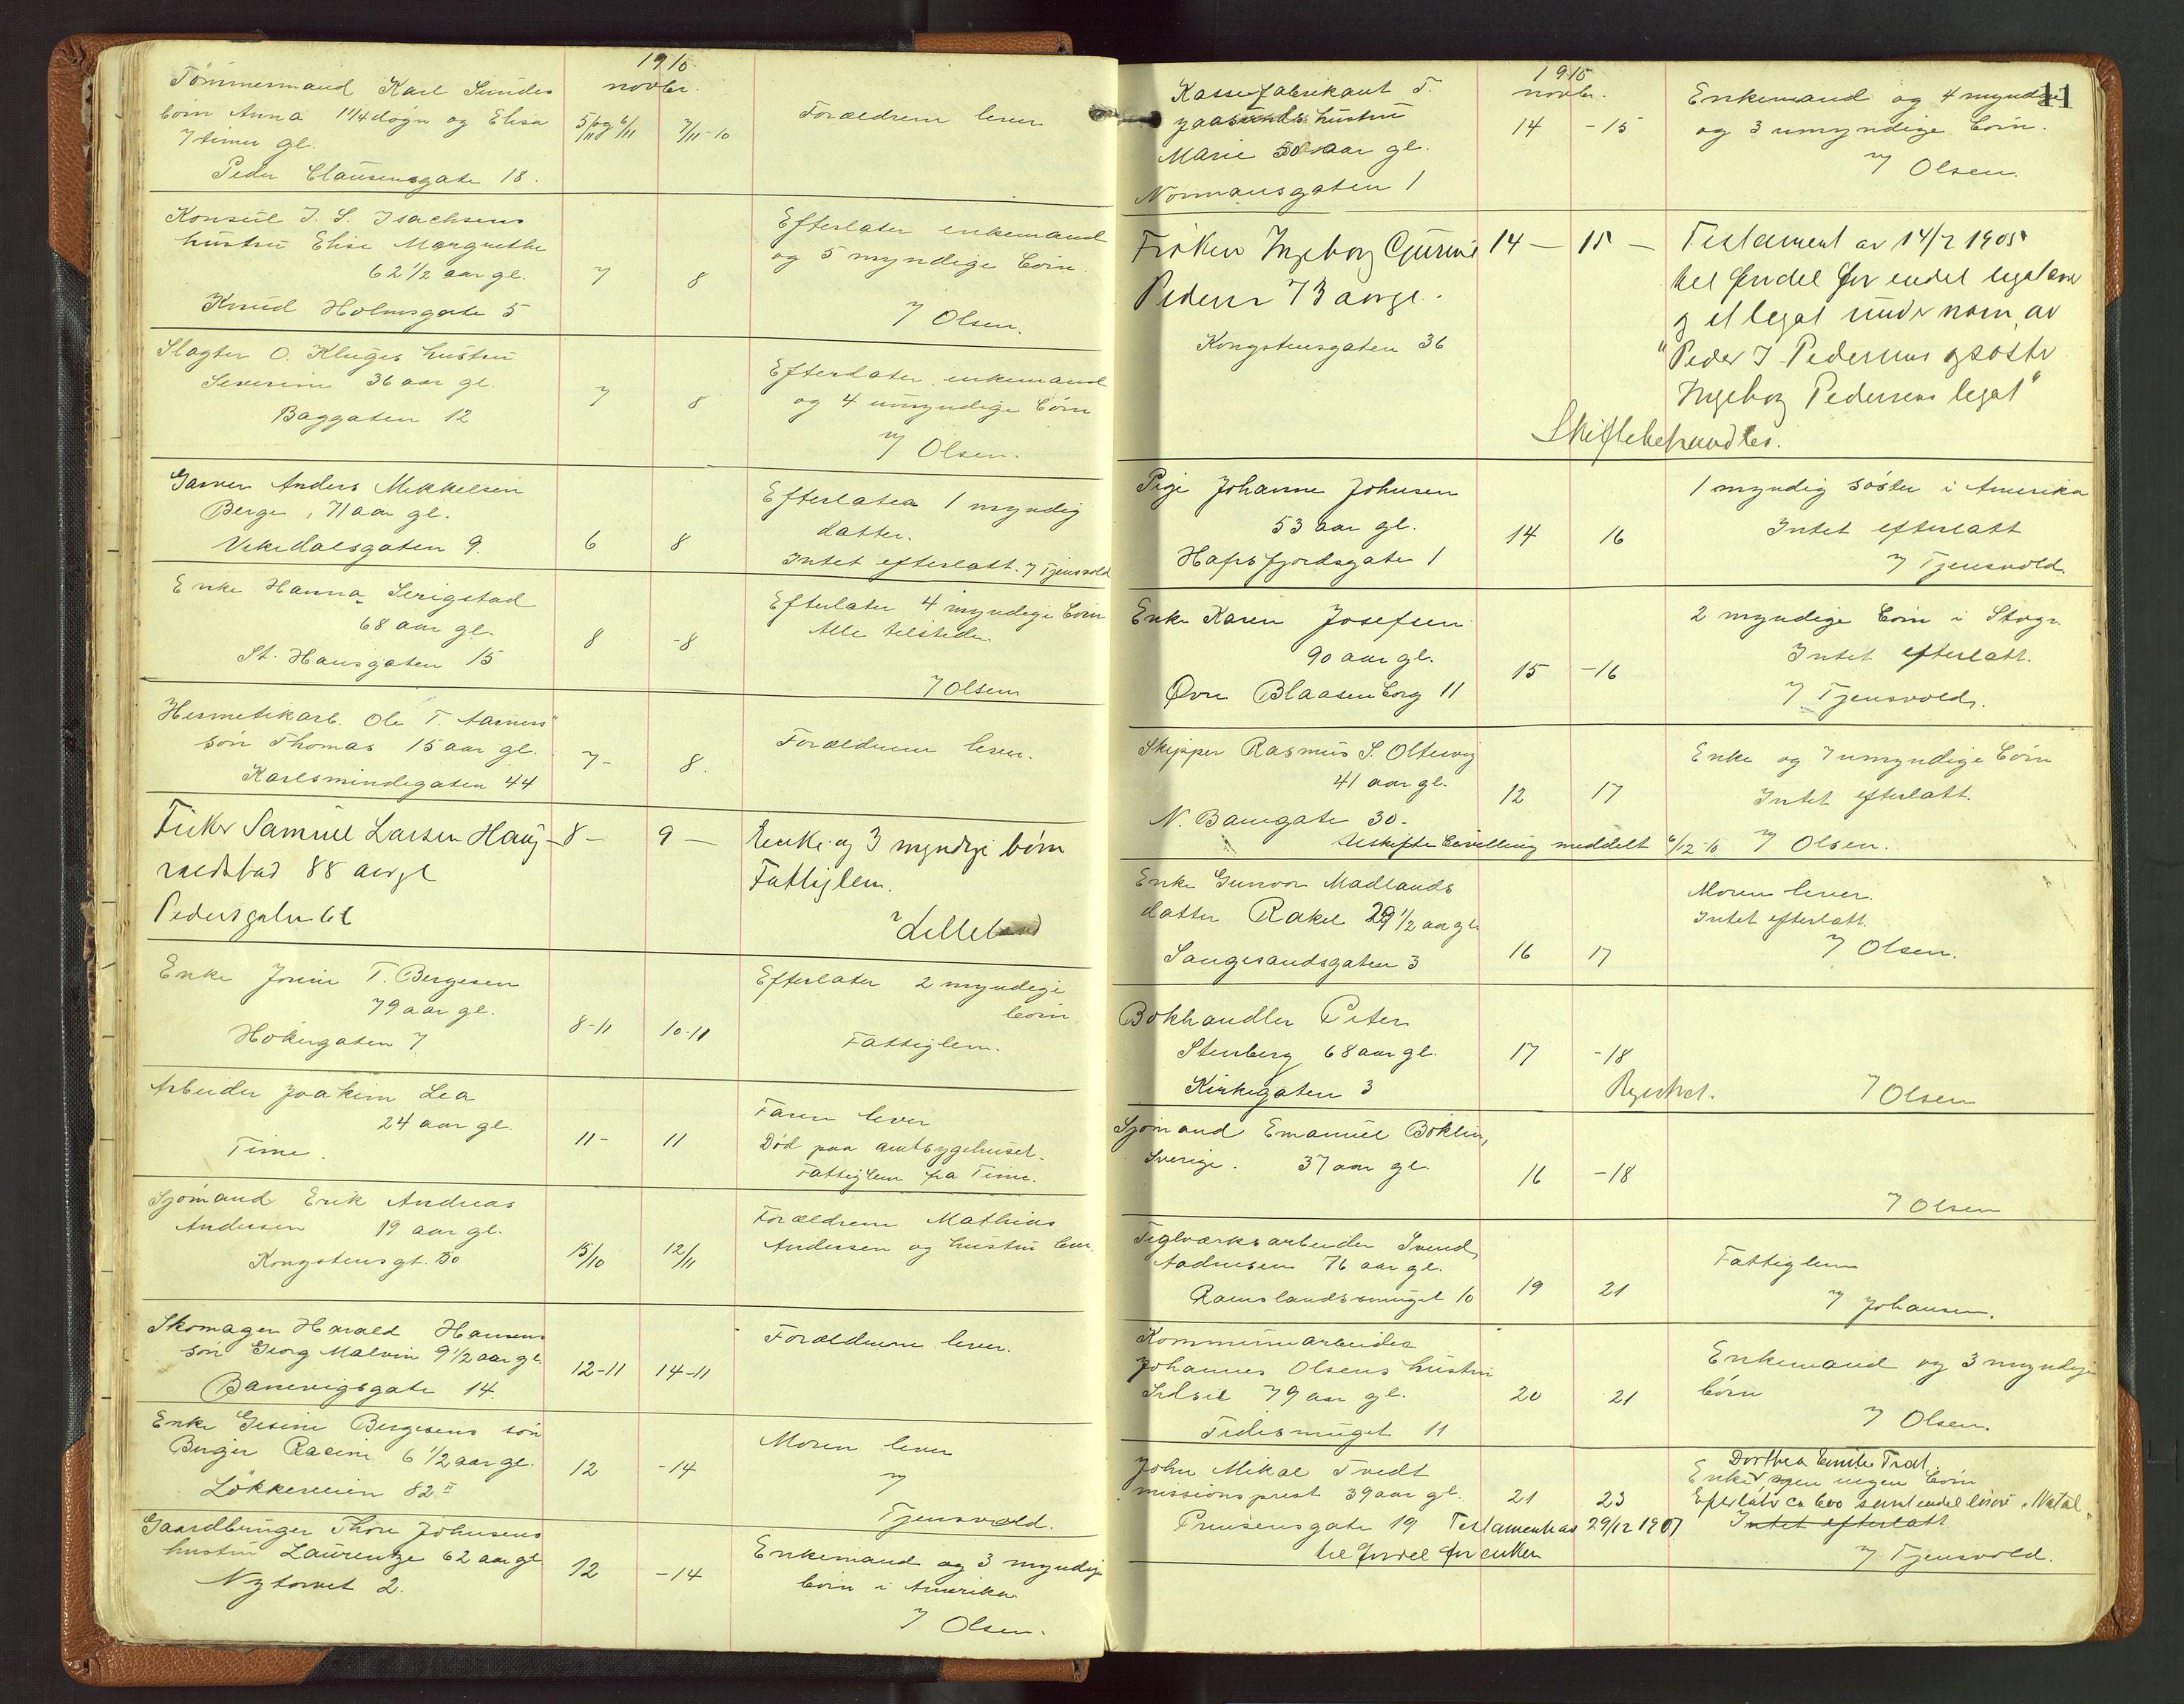 1910
novbr.
Tømmermand Karl Sundes
børn Anna 1 1/4 døgn og Elisa
7 timer gl.
5/11 og 6/11
7/11-10
Forældrene lever
Peder Clausensgate 18.
Konsul I. S. Isachsens
hustru Elise Margrethe
62 1/2 aar gl.
Knud Holmsgate 5
7
8
Efterlater enkemand
og 5 myndige børn.
7 Olsen.
Slagter O. Kluges hustru
Severine 36 aar gl.
Baggaten 12
7
8
Efterlater enkemand
og 4 umyndige børn
7 Olsen.
Garver Anders Mikkelsen
Berge, 71 aar gl.
Vikedalsgaten 9.
6
8
Efterlater 1 myndig
datter.
Intet efterlatt. 7 Tjensvold
Enke Hanna Serigstad
68 aar gl.
St. Hansgaten 15
8
-8
Efterlater 4 myndige børn
Alle tilstede.
7 Olsen
Hermetikarb. Ole T. Aarness'
søn Thomas 15 aar gl.
Karlsmindegaten 44
7-
8.
Forældrene lever.
Fisker Samuel Larsen Haug-
valdstad 88 aar gl
Pedersgaten 66
8-
9 -
Enke og 3 myndige børn
Fattiglem.
Lilleland
Enke Jonine T. Bergesen
79 aar gl.
Høkergaten 7
8-11
10-11
Efterlater 2 myndige
børn
Fattiglem.
Arbeider Joakim Lea
24 aar gl.
Time.
11-
11
Faren lever
Død paa amtsygehuset.
Fattiglem fra Time.
Sjømand Erik Andreas
Andersen 19 aar gl.
Kongstensgt. 50
15/10
12/11
Forældrene Mathias
Andersen og hustru lever.
Skomager Harald Hansens
søn Georg Malvin 9 1/2 aar gl.
Banevigsgate 14.
12-11
14-11
Forældrene lever.
Enke Gesine Bergesens søn
Birger Racin 6 1/2 aar gl.
Løkkeveien 82 II
12
-14
Moren lever
7
Tjensvold.
Gaardbruger Thore Johnsens
hustru Laurentze 62 aar gl
Nytorvet 2.
12
-14
Enkemand og 3 myndige
børn i Amerika
7 Olsen.
11
1910
novbr.
Kassefabrikant T.
hustru
Marie 50 aar gl.
Normansgaten 1
14
-15
Enkemand og 4 myndige
og 3 umyndige børn.
7 Olsen.
Frøken Ingeborg Gurine
Pedersen 73 aar gl.
Kongstensgaten 36
14 -
15 -
Testament av 14/7 1905
til fordel for endel legatarer
og et legat under navn av
"Peder I Pedersens og søster
Ingeborg Pedersens legat"
Skiftebehandles.
Pige Johanne Johnsen
53 aar gl.
Hafrsfjordsgate 1
14
16
1 myndig søster i Amerika
Intet efterlatt
7 Tjensvold.
Enke Karen Josefsen
90 aar gl.
Øvre Blaasenborg 11
15
-16
2 myndige børn i Stvgr.
Intet efterlatt.
7 Tjensvold.
Skipper Rasmus S. Oltesvig
41 aar gl.
N. Banegate 30.
12
17
Enke og 7 umyndige børn
Intet efterlatt.
Uskiftebevilling meddelt 6/12-10 7 Olsen.
Enke Gunvor Madlands
datter Rakel 29 1/2 aar gl.
Sangesandsgaten 3
16
17
Moren lever.
Intet efterlatt.
7 Olsen.
Bokhandler Peter
Stenberg 68 aar gl.
Kirkegaten 3
17
-18
Registret.
7 Olsen
Sjømand Emanuel Boklin,
Sverige. 37 aar gl.
16
-18
7 Olsen
Teglværksarbeider Svend
Aadnesen 76 aar gl.
Ramslandssmuget 10
19
21
Fattiglem
7 Johansen.
Kommunearbeider
Johannes Olsens hustru
Sidsel 79 aar gl.
Tidesmuget 11
20
21
Enkemand og 3 myndige
børn
7 Olsen.
John Mikal Tvedt
missionsprest 39 aar gl.
Prinsensgate 19
21
23
Dorthea Emilie Tvedt.
Enke ingen børn
Efterlater ca 600 samt endel løsøre i Natal.
Intet efterlatt
Testamentas 29/12 1907
til fordel for enken
7 Tjensvold.